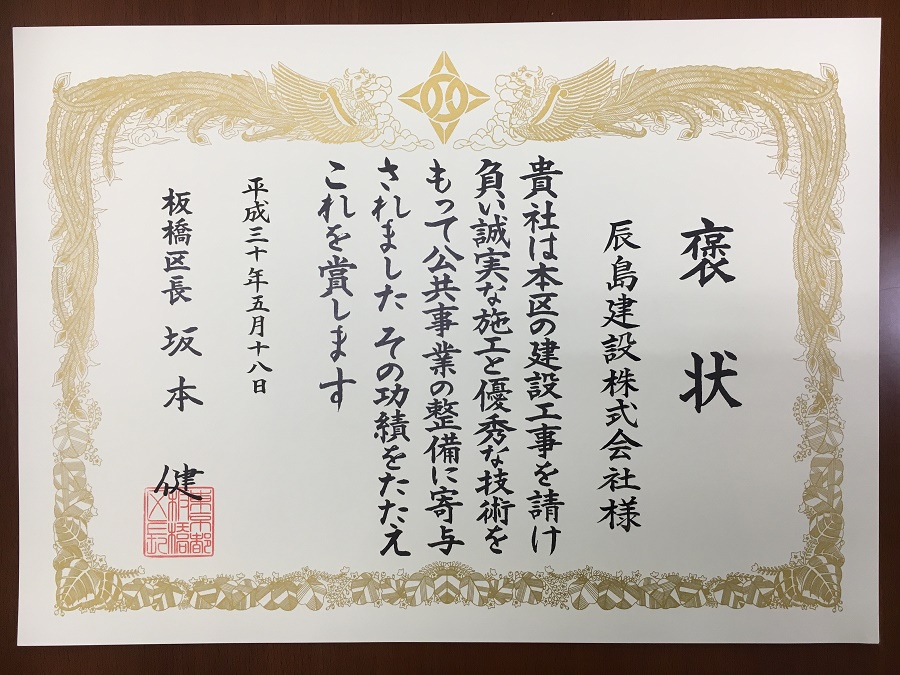 褒状
辰島建設株式会社様
貴社は本区の建設工事を請け
負い誠実な施工と優秀な技術を
もって公共事業の整備に寄与
されました その功績をたたえ
これを賞します
平成三十年五月十八日
板橋区長 坂本 健
東京都
板橋
区長印